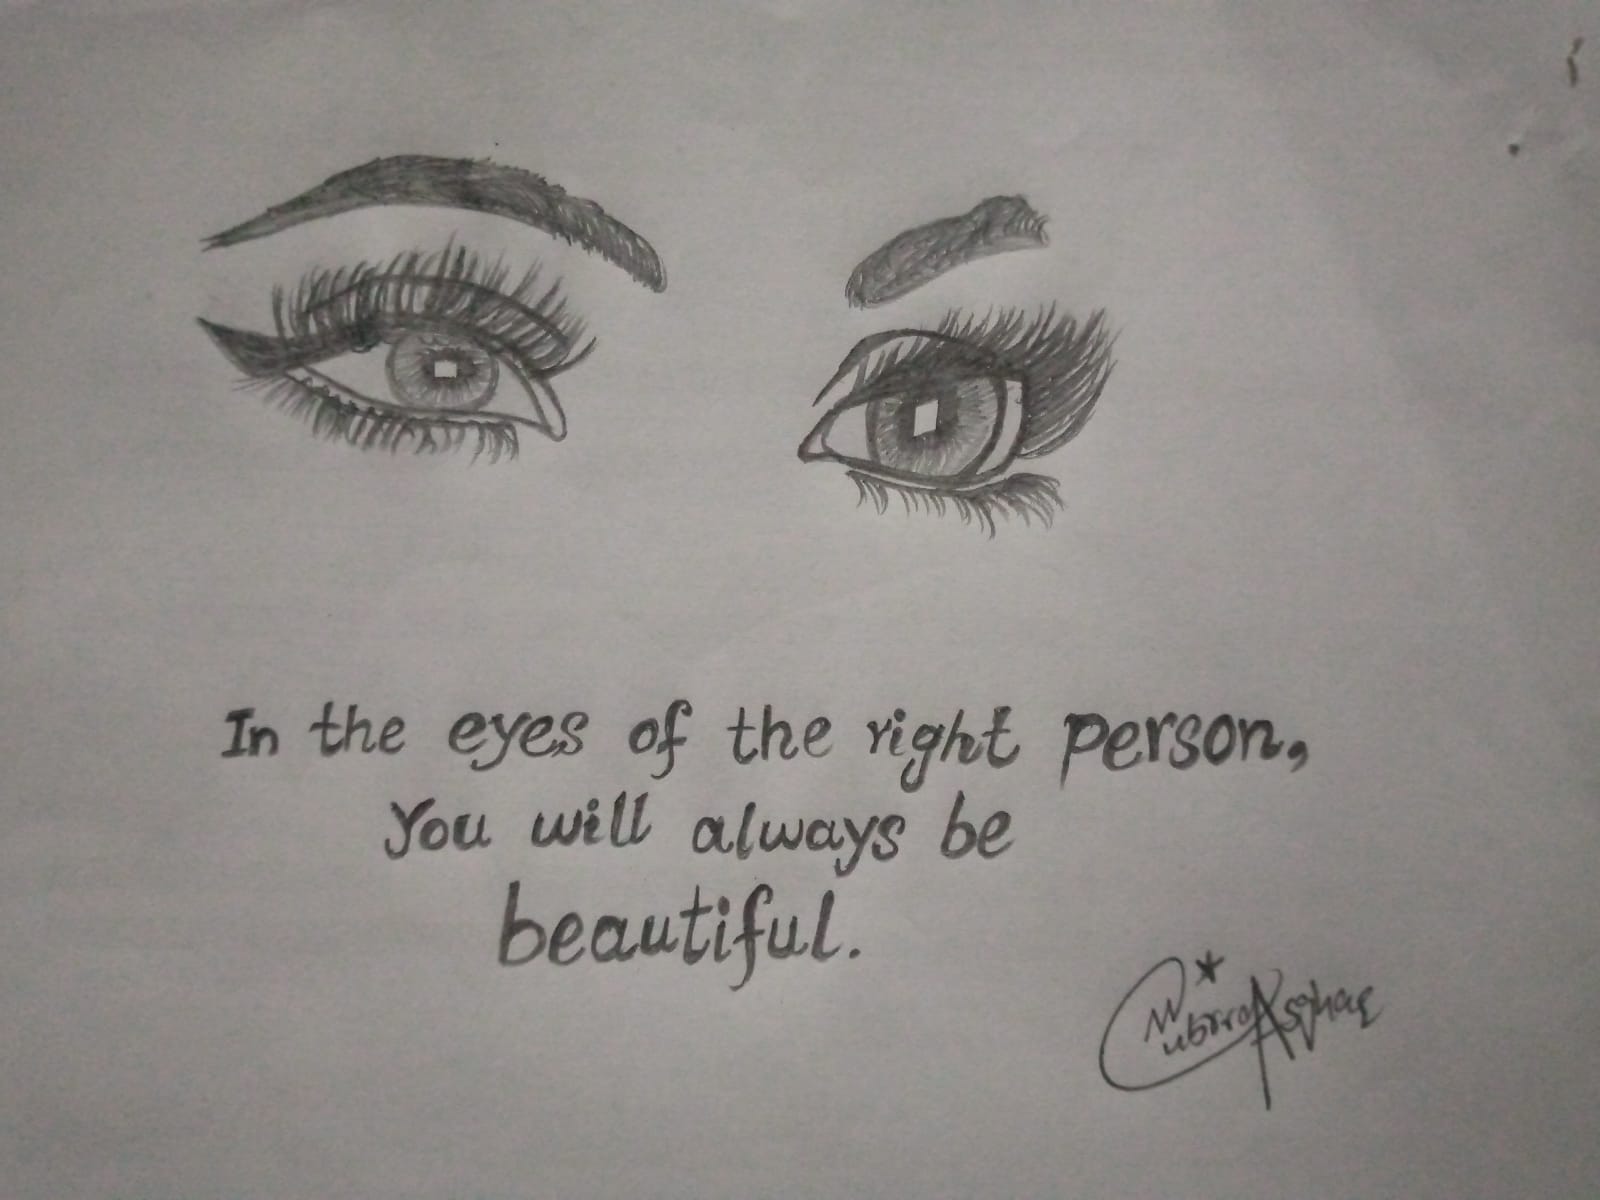 In the eyes of the right person,
You will always be
beautiful.